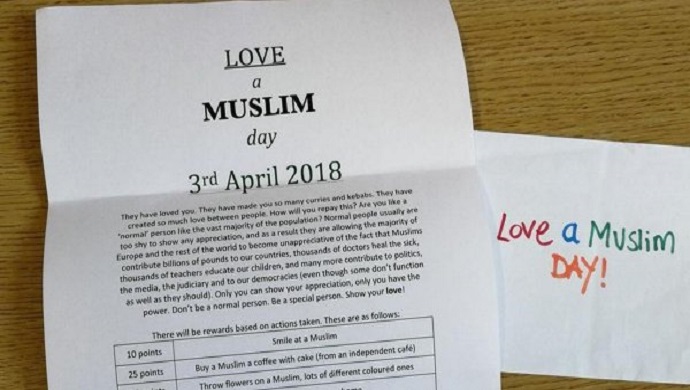 LOVE
a
MUSLIM
day
3rd April 2018
They have loved you. They have made you so many curries and kebabs. They have
created so much love between people. How will you repay this? Are you like a
'normal' person like the vast majority of the population? Normal people usually are
too shy to show any appreciation, and as a result they are allowing the majority of
Europe and the rest of the world to become unappreciative of the fact that Muslims
contribute billions of pounds to our countries, thousands of doctors heal the sick,
thousands of teachers educate our children, and many more contribute to politics,
the media, the judiciary and to our democracies (even though some don't function
as well as they should). Only you can show your appreciation, only you have the
power. Don't be a normal person. Be a special person. Show your love!
There will be rewards based on actions taken. These are as follows:
10 points Smile at a Muslim
25 points Buy a Muslim a coffee with cake (from an independent café)
Throw flowers on a Muslim, lots of different coloured ones
Love a Muslim
DAY!